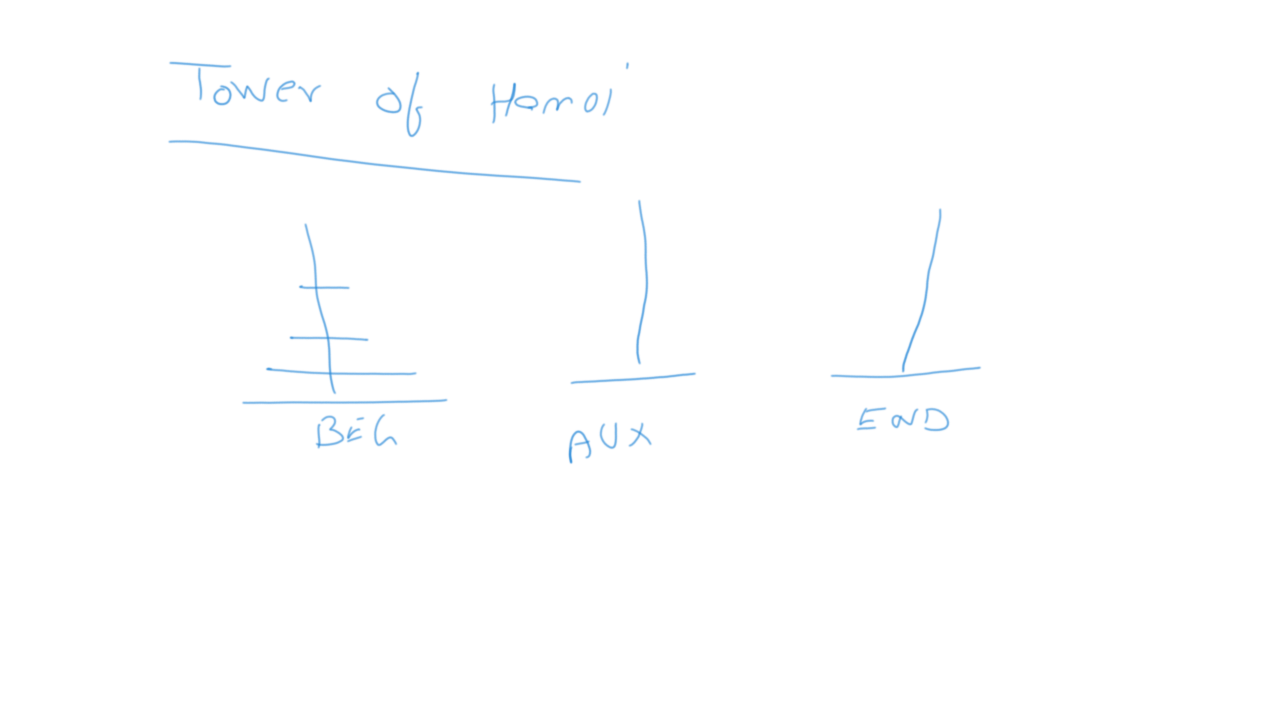 Tower of Hanoi
BEG
AUX
END